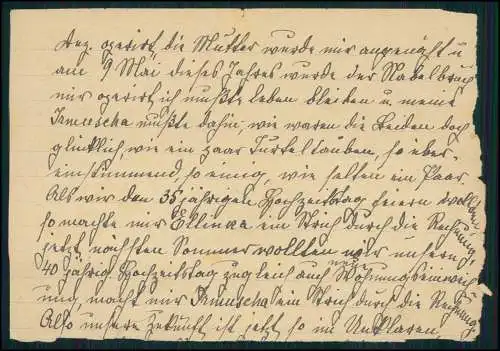 Dez. operirt, die Mutter wurde mir angenäht u
am 9 Mai dieses Jahres wurde der Nabelbruch
mir operirt, ich mußte leben bleiben u. meine
Irmuscha mußte dahin, wie waren die Beiden doch
glücklich, wie ein paar Turteltauben, so über-
einstimmend, so einig, wie selten ein Paar
Als wir den 35 jährigen Hochzeitstag feiern wollten
so machte mir Ellinka ein Strich durch die Rechnung,
jetzt nächsten Sommer wollten wir unsern
40 jährig Hochzeitstag zugleich auch Wohnungseinweih
ung, macht mir Irmuscha ein Strich durch die Rechnung
Also unsere Zukunft ist jetzt so im Unklaren,